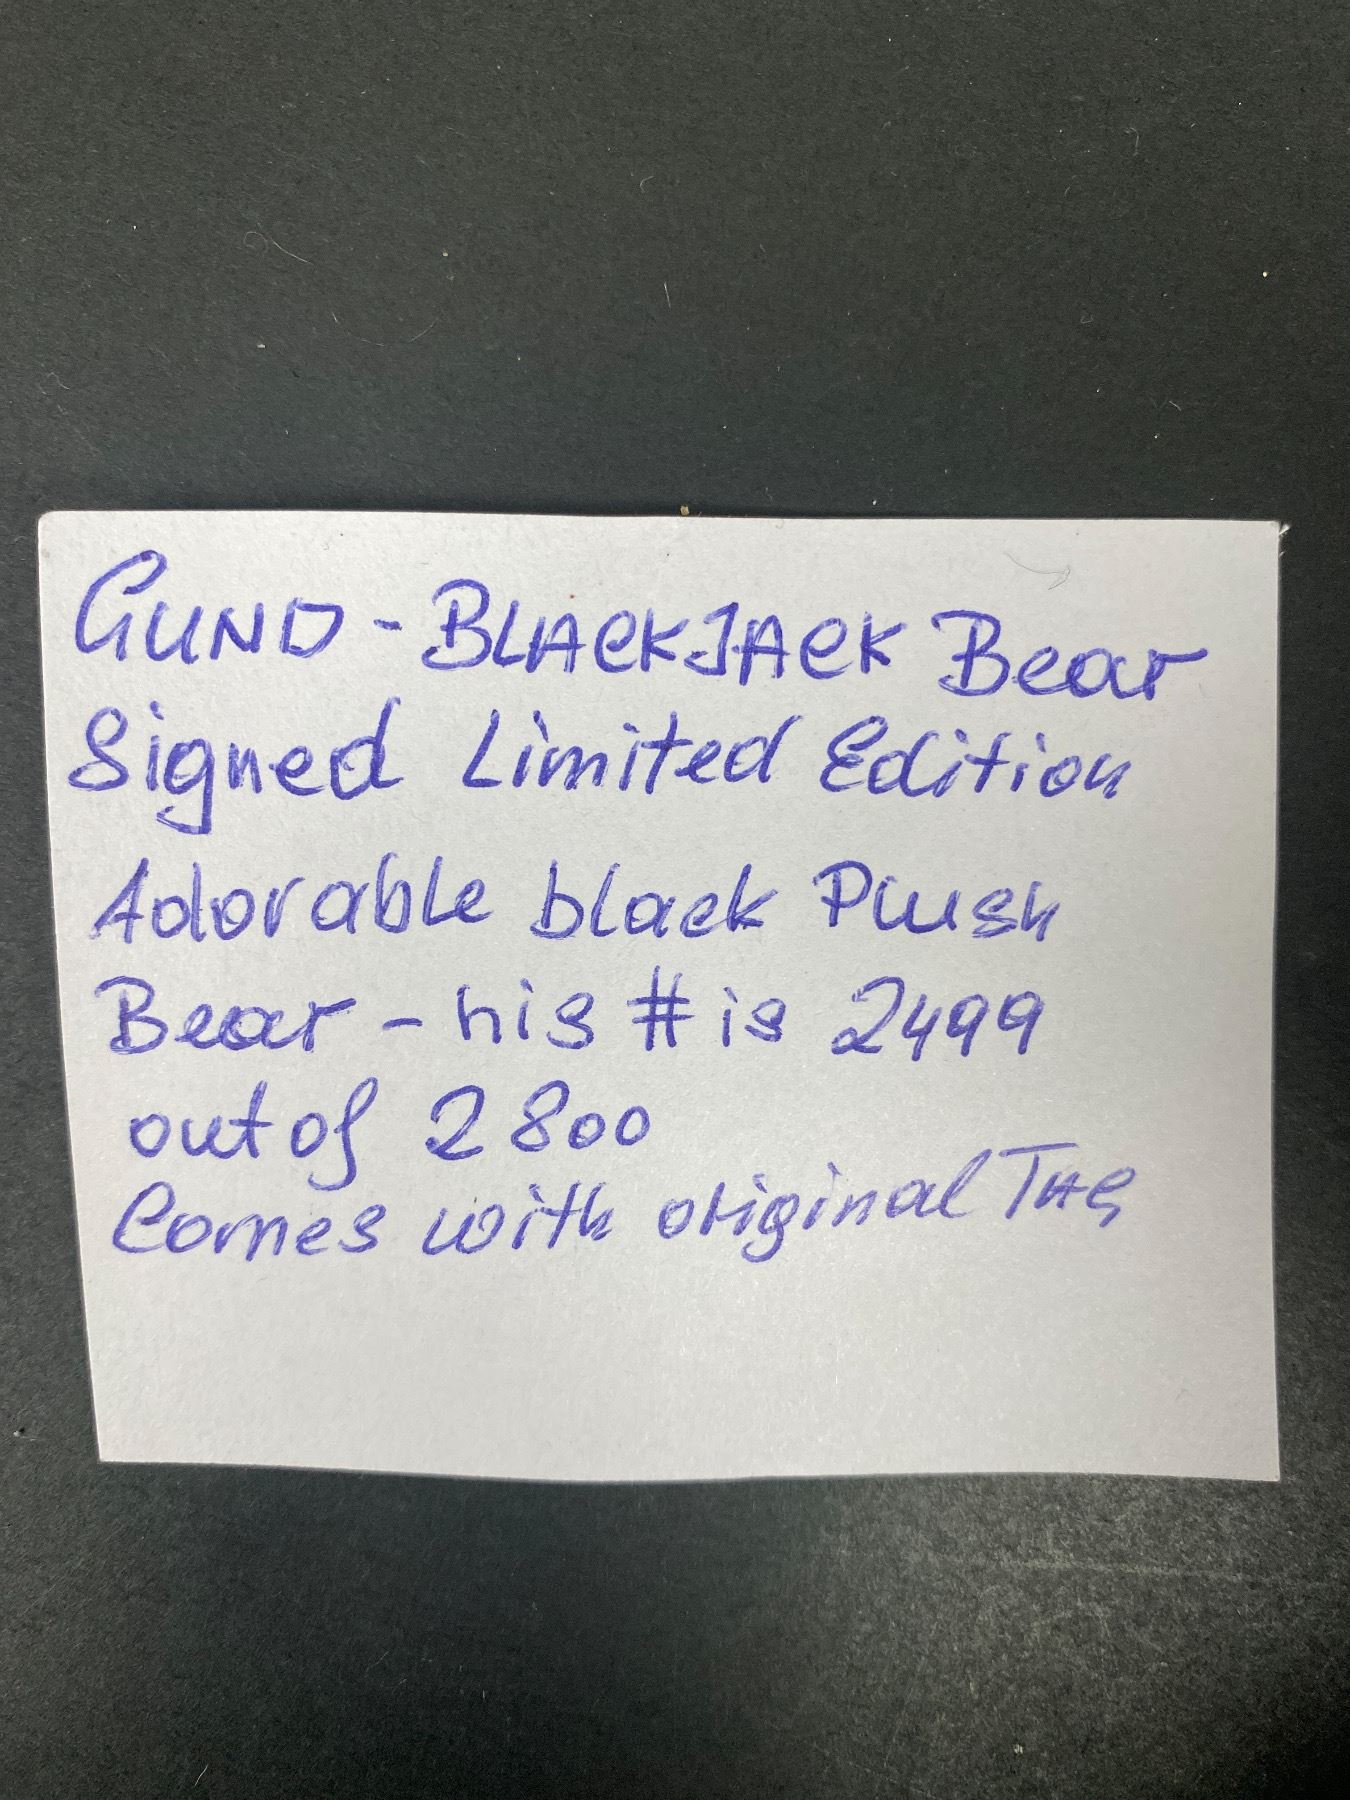 GUND - BLACKJACK Bear
Signed Limited Edition
Adorable black Plush
Bear - his # is 2499
out of 2800
Comes with original TAG